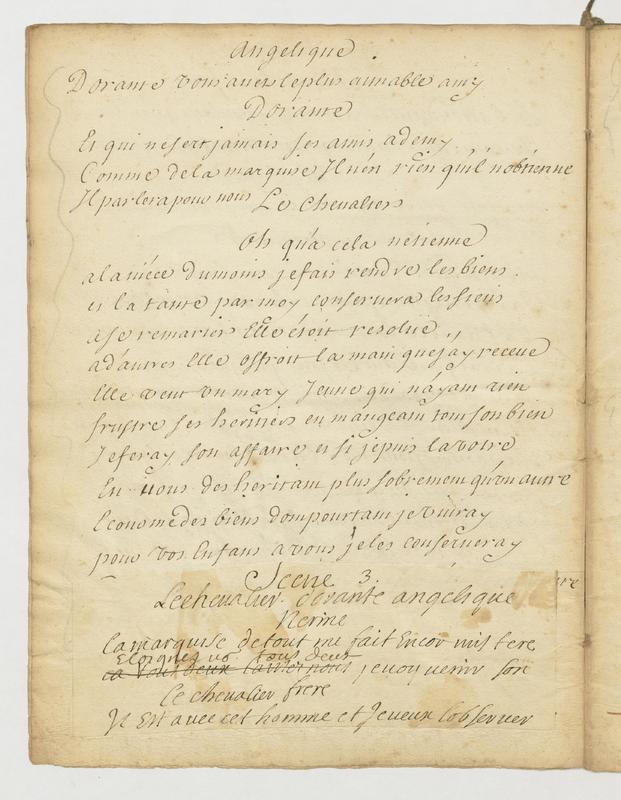 Angelique
Dorante vous avez le plus aimable amy
Dorante
Et qui ne sert jamais ses amis a demy
Comme de la marquise Il n'est rien qu'il n'obtienne
Il parlera pour nous Le Chevalier
Oh qu'a cela ne tienne
a la niéce du moins je fais rendre les biens
et la tante par moy conservera les siens
a se remarier Elle étoit resolüe
a d'autres Elle offroit la main que j'ay receue
Elle veut un mary Jeune qui n'ayant rien
frustre ses heritiers en mangeant tout son bien
Je feray son affaire et si je puis la votre
En vous des heritant plus sobrement qu'un autre
Econome des biens dont pourtant je vivray
pour vos Enfans a vous je les conserveray
Scene 3.
Le chevalier dorante angelique
Nerine
La marquise de tout me fait Encor mistere
Eloignez vo' tous deux
je voy venir son
Le chevalier frere
Il Est avec cet homme et je veux l'observer